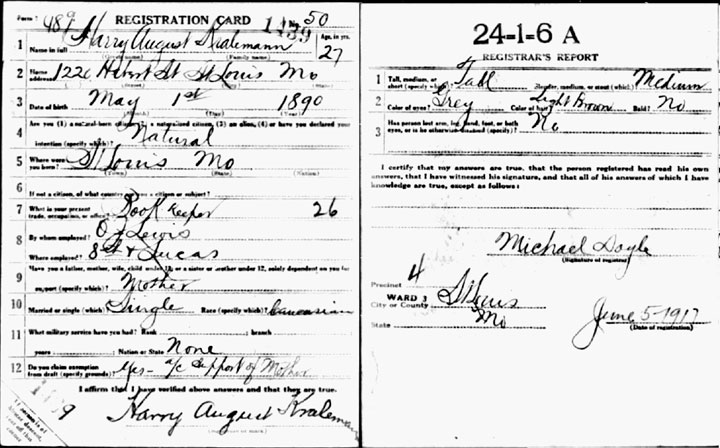 Form 1 489 REGISTRATION CARD 1439 No. 50
1 Name in full Harry August Kralemann Age, in yrs. 27
(Given name) (Family name)
2 Home address 1226 St Louis Mo
(No.) (Street) (City) (State)
3 Date of birth May 1st 1890
(Month) (Day) (Year)
4 Are you (1) a natural-born citizen, (2) a naturalized citizen, (3) an alien, (4) or have you declared your
intention (specify which)? Natural
5 Where were you born? St Louis Mo
(Town) (State) (Nation)
6 If not a citizen, of what country are you a citizen or subject?
7 What is your present trade, occupation, or office? Book Keeper 26
8 By whom employed? Lewis
Where employed? 8 St & Lucas
9 Have you a father, mother, wife, child under 12, or a sister or brother under 12, solely dependent on you for
support (specify which)? Mother
10 Married or single (which)? Single Race (specify which)? Caucasian
11 What military service have you had? Rank branch
years Nation or State None
12 Do you claim exemption from draft (specify grounds)? Yes - a/c Support of Mother
I affirm that I have verified above answers and that they are true.
Harry August Kralemann
24-1-6 A
REGISTRAR'S REPORT
1 Tall, medium, or short (specify which)? Tall Slender, medium, or stout (which)? Medium
2 Color of eyes? Grey Color of hair? Light Brown Bald? No
3 Has person lost arm, leg, hand, foot, or both
eyes, or is he otherwise disabled (specify)? No
I certify that my answers are true, that the person registered has read his own
answers, that I have witnessed his signature, and that all of his answers of which I have
knowledge are true, except as follows:
Michael Doyle
(Signature of registrar)
Precinct 4
WARD 3
City or County St Louis
State Mo
June 5-1917
(Date of registration)